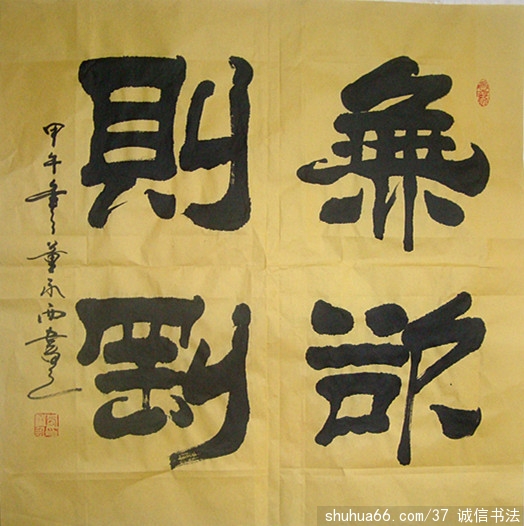 無欲
則剛
甲午年董永西書
shuhua66.com/37 诚信书法